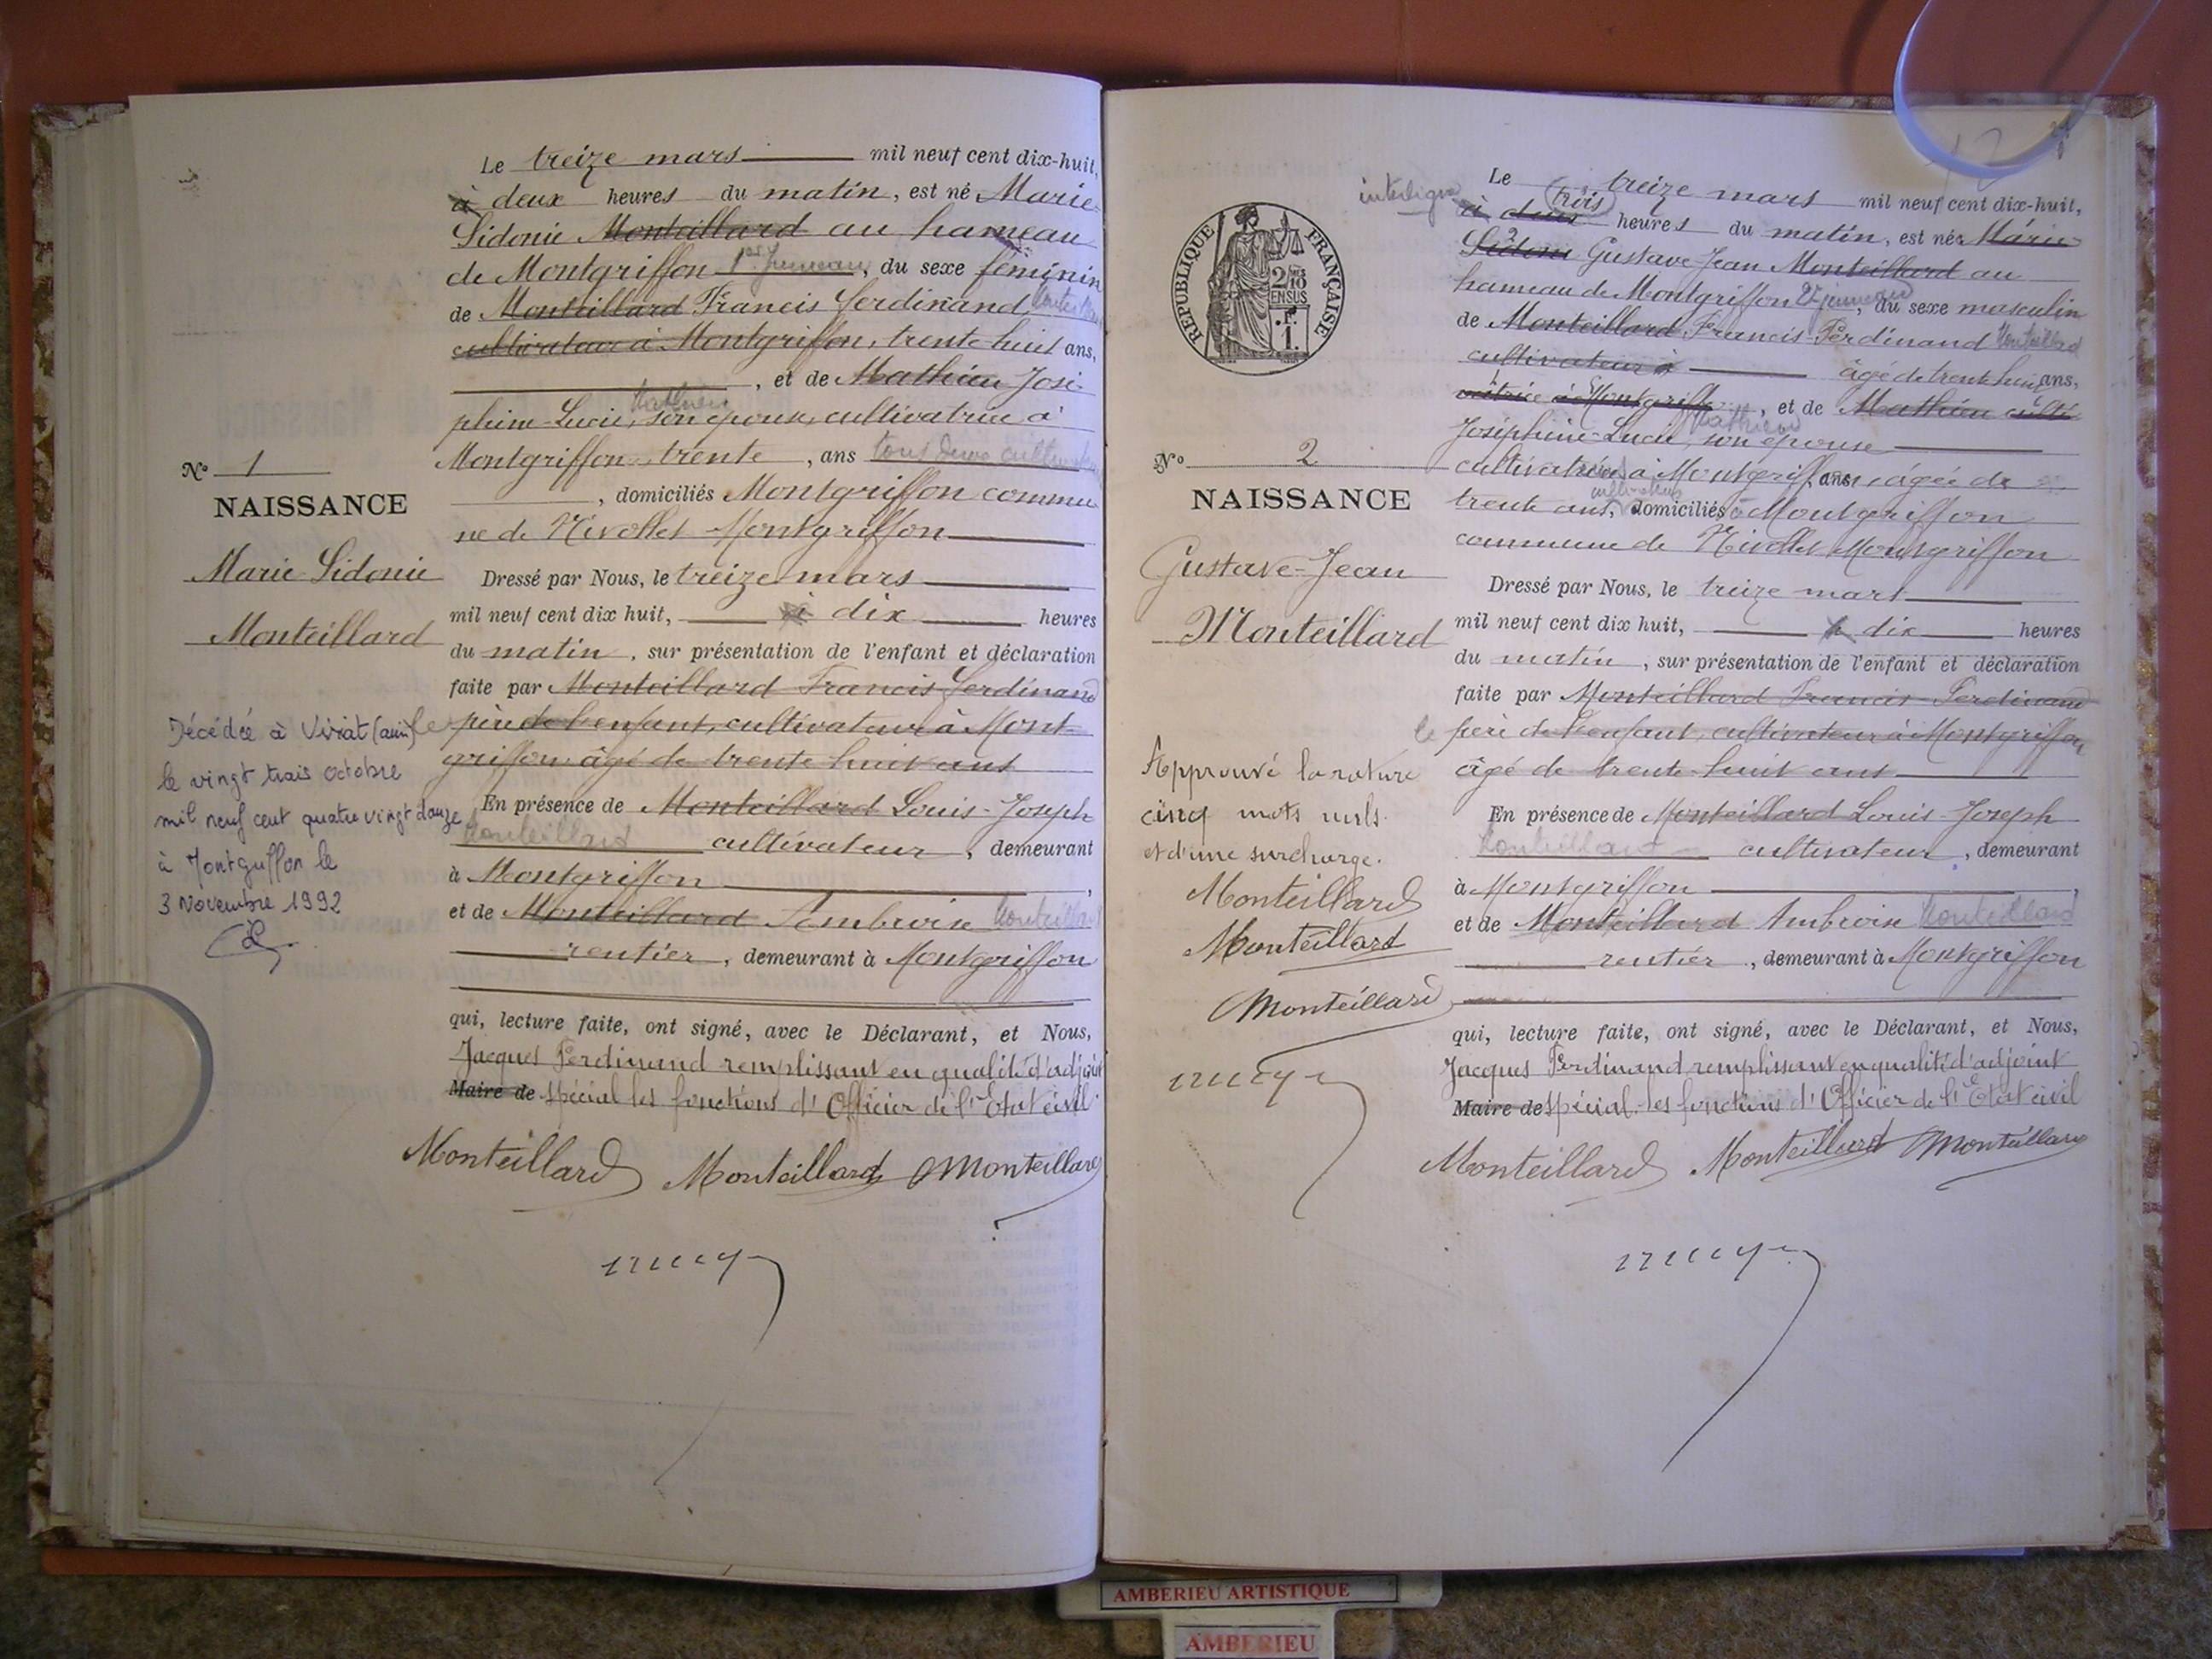 Le treize mars mil neuf cent dix-huit,
à deux heures du matin, est né Marie
Sidonie Monteillard au hameau
de Montgriffon 1er jumeau, du sexe féminin
de Monteillard Francis Ferdinand Monteillard
cultivateur à Montgriffon, trente-huit ans,
, et de Mathieu José-
phine-Lucie, Mathieu son épouse, cultivatrice à
Montgriffon trente, ans tous deux cultivateurs
, domiciliés Montgriffon commu
ne de Nivollet-Montgriffon
N° 1
NAISSANCE
Marie Sidonie
Monteillard
Dressé par Nous, le treize mars
mil neuf cent dix huit, à dix heures
du matin, sur présentation de l'enfant et déclaration
faite par Monteillard Francis Ferdinand
le père de l'enfant, cultivateur à Mont-
griffon âgé de trente huit ans
En présence de Monteillard Louis-Joseph
Monteillard cultivateur, demeurant
à Montgriffon,
et de Monteillard Ambroise Monteillard
rentier, demeurant à Montgriffon
qui, lecture faite, ont signé, avec le Déclarant, et Nous,
Jacques Ferdinand remplissant en qualité d'adjoint
Maire de spécial les fonctions d'Officier de l'Etat civil.
Monteillard Monteillard Monteillard
Décédée à Viriat (ain)
le vingt trois octobre
mil neuf cent quatre vingt douze
à Montgriffon le
3 Novembre 1992
RÉPUBLIQUE FRANÇAISE
2/10
EN SUS
1.
Le treize mars mil neuf cent dix-huit,
interligne à deux trois heures du matin, est né Marie
Sidonie Gustave Jean Monteillard au
hameau de Montgriffon 2e jumeau, du sexe masculin
de Monteillard Francis-Ferdinand Monteillard
cultivateur à âgé de trente huit ans,
vatrice à Montgriffon, et de Mathieu culti
Joséphine-Lucie, Mathieu son épouse
cultivatrice à Montgriff ans âgée de
trente ans, cultivateurs domiciliés à Montgriffon
commune de Nivollet Montgriffon
N° 2
NAISSANCE
Gustave-Jean
Monteillard
Dressé par Nous, le treize mars
mil neuf cent dix huit, à dix heures
du matin, sur présentation de l'enfant et déclaration
faite par Monteillard Francis-Ferdinand
le père de l'enfant, cultivateur à Montgriffon
âgé de trente-huit ans
En présence de Monteillard Louis-Joseph
Monteillard cultivateur, demeurant
à Montgriffon,
et de Monteillard Ambroise Monteillard
rentier, demeurant à Montgriffon
qui, lecture faite, ont signé, avec le Déclarant, et Nous,
Jacques Ferdinand remplissant en qualité d'adjoint
Maire de spécial les fonctions d'Officier de l'Etat civil
Monteillard Monteillard Monteillard
Approuvé la rature
cinq mots nuls.
et d'une surcharge.
Monteillard
Monteillard
Monteillard
AMBERIEU ARTISTIQUE
AMBERIEU